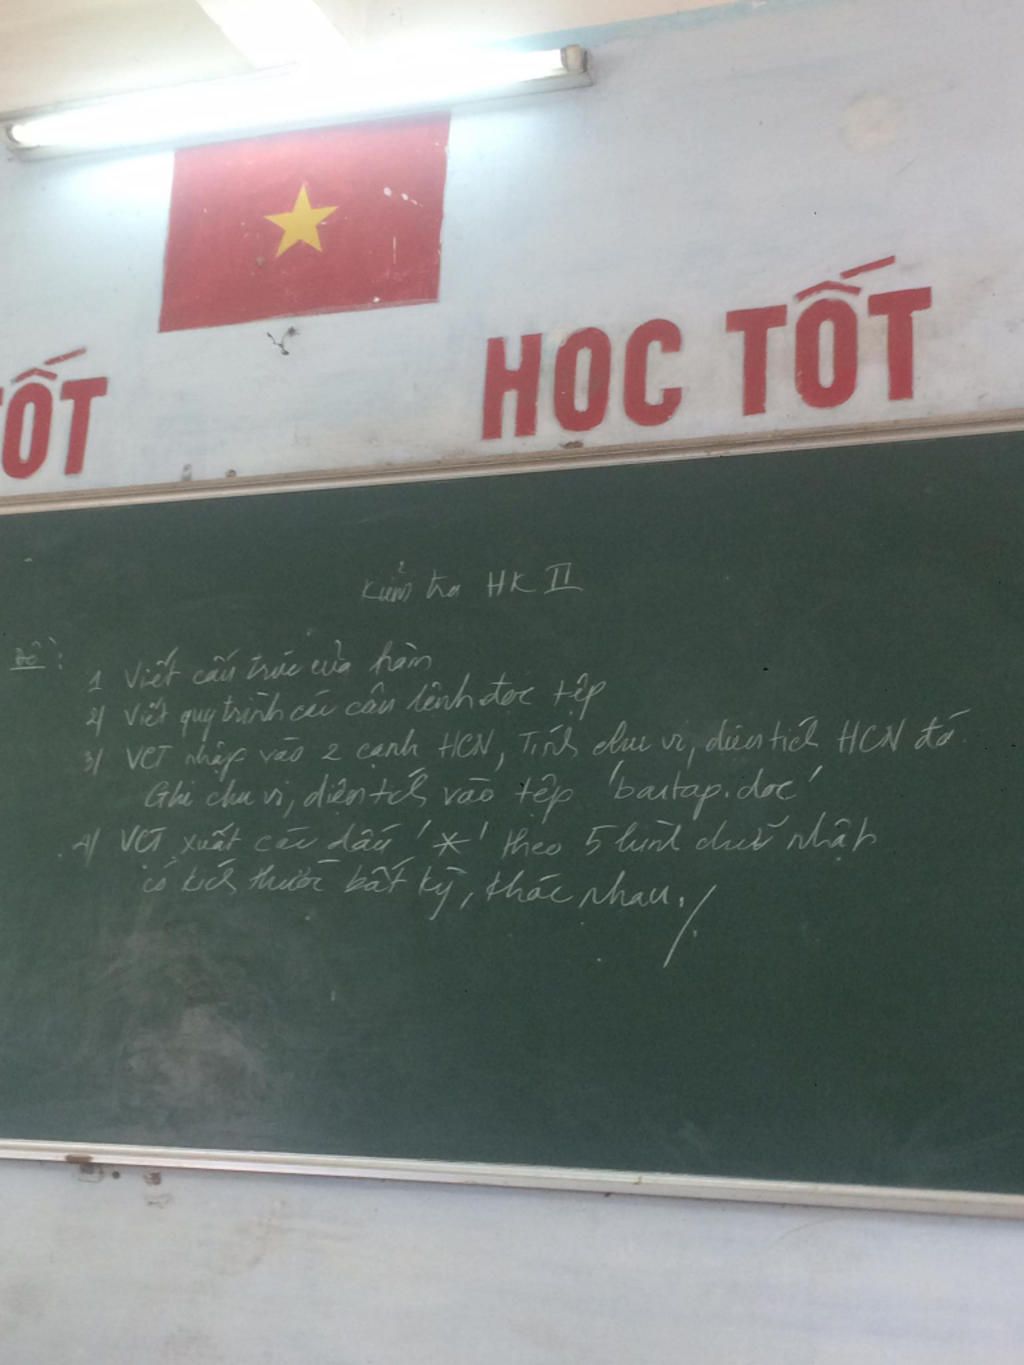 TỐT
HỌC TỐT
Kiểm tra HK II
Đề:
1 Viết cấu trúc của hàm
2/ Viết quy trình các câu lệnh đọc tệp
3/ VCT nhập vào 2 cạnh HCN, Tính chu vi, diện tích HCN đó
Ghi chu vi, diện tích vào tệp 'baitap.doc'
4/ VCT xuất các dấu '*' theo 5 hình chữ nhật
có kích thước bất kỳ, khác nhau./.